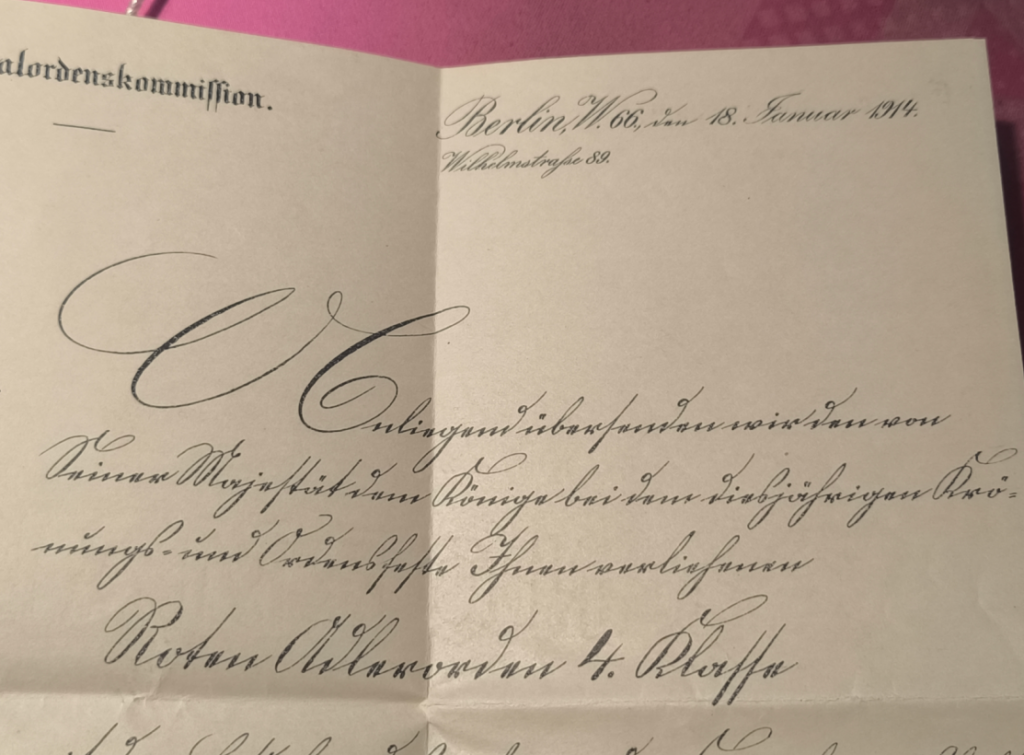 alordenskommission.
Berlin, W. 66, den 18. Januar 1914.
Wilhelmstraße 89.
Anliegend übersenden wir den von
Seiner Majestät dem Könige bei dem diesjährigen Krö-
nungs- und Ordensfeste Ihnen verliehenen
Roten Adlerorden 4. Klasse